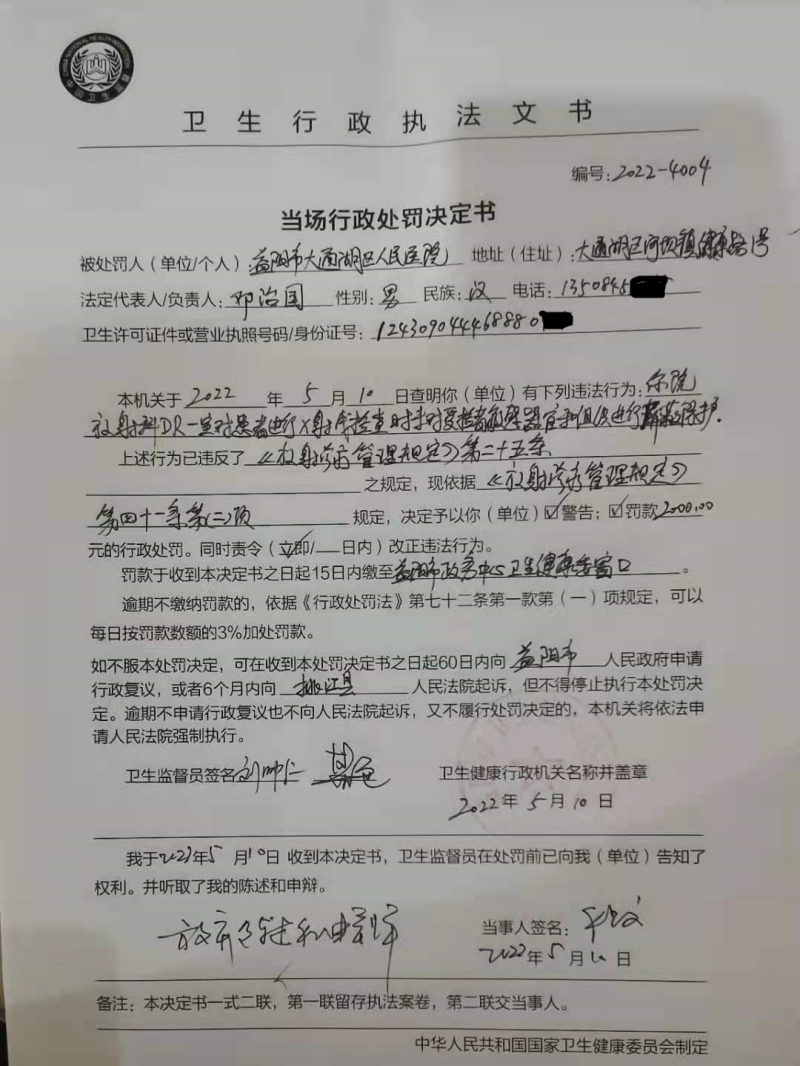 卫生行政执法文书
编号:2022-4004
当场行政处罚决定书
被处罚人（单位/个人）:益阳市大通湖区人民医院 地址（住址）:大通湖区河坝镇健康路1号
法定代表人/负责人:邓治国 性别:男 民族:汉 电话:1350845
卫生许可证件或营业执照号码/身份证号:124309044468880
本机关于 2022 年 5 月 10 日查明你（单位）有下列违法行为:你院
放射科DR一室对患者进行X射线检查时未对受检者敏感器官和组织进行屏蔽保护.
上述行为已违反了《放射诊疗管理规定》第二十五条
之规定，现依据《放射诊疗管理规定》
第四十一条第(二)项 规定，决定予以你（单位）☑警告；☑罚款2000.00
元的行政处罚。同时责令（立即/__日内）改正违法行为。
罚款于收到本决定书之日起15日内缴至益阳市政务中心卫生健康委窗口。
逾期不缴纳罚款的，依据《行政处罚法》第七十二条第一款第（一）项规定，可以
每日按罚款数额的3%加处罚款。
如不服本处罚决定，可在收到本处罚决定书之日起60日内向 益阳市 人民政府申请
行政复议，或者6个月内向 桃江县 人民法院起诉，但不得停止执行本处罚决
定。逾期不申请行政复议也不向人民法院起诉，又不履行处罚决定的，本机关将依法申
请人民法院强制执行。
卫生监督员签名 刘帅仁 卫生健康行政机关名称并盖章
2022年 5 月 10 日
我于2022年5月10日收到本决定书，卫生监督员在处罚前已向我（单位）告知了
权利。并听取了我的陈述和申辩。
放弃陈述和申辩 当事人签名：
2022年5月10日
备注：本决定书一式二联，第一联留存执法案卷，第二联交当事人。
中华人民共和国国家卫生健康委员会制定